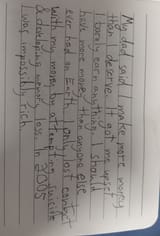 My dad said I make more money
than deserve. It got me upset
I barely earn anything. I should
have more money than anyone else
ever had on Earth. I only lost contact
with my money by attempting suicide
& developing memory loss. In 2005
I was impossibly rich